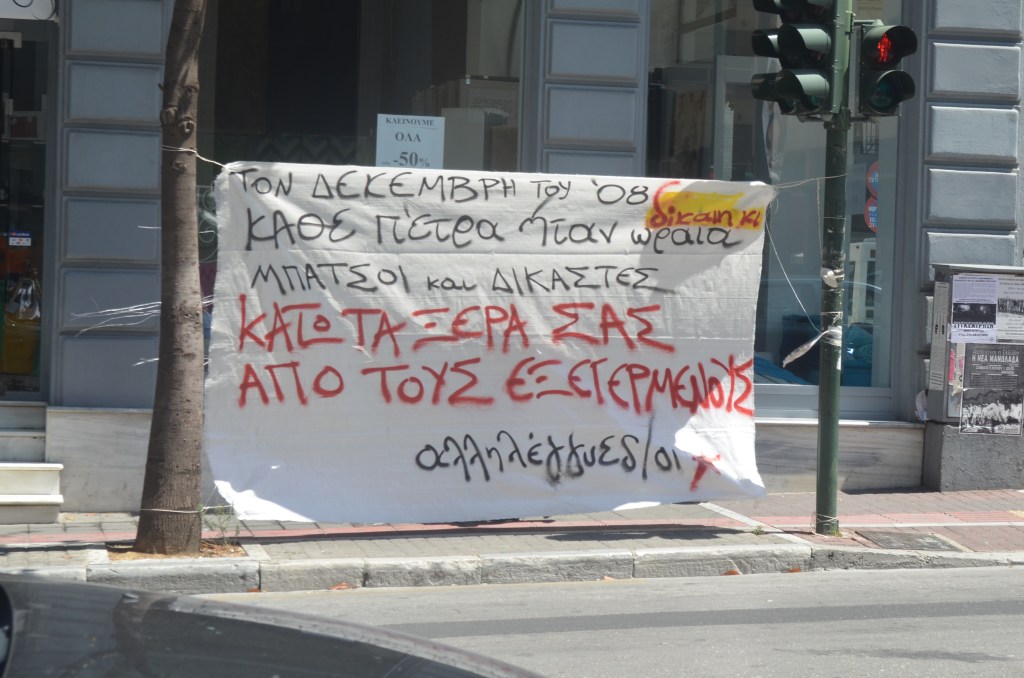 ΚΛΕΙΝΟΥΜΕ
ΟΛΑ
-50%
ΤΟΝ ΔΕΚΕΜΒΡΗ ΤΟΥ '08
δίκαιη κι
ΚΑΘΕ ΠΕΤΡΑ ΉΤΑΝ ωραία
ΜΠΑΤΣΟΙ και ΔΙΚΑΣΤΕΣ
ΚΑΤΩ ΤΑ ΞΕΡΑ ΣΑΣ
ΑΠΟ ΤΟΥΣ ΕΞΕΓΕΡΜΕΝΟΥΣ
αλληλέγγυες/οι
Η ΝΕΑ ΜΑΝΩΛΑΔΑ